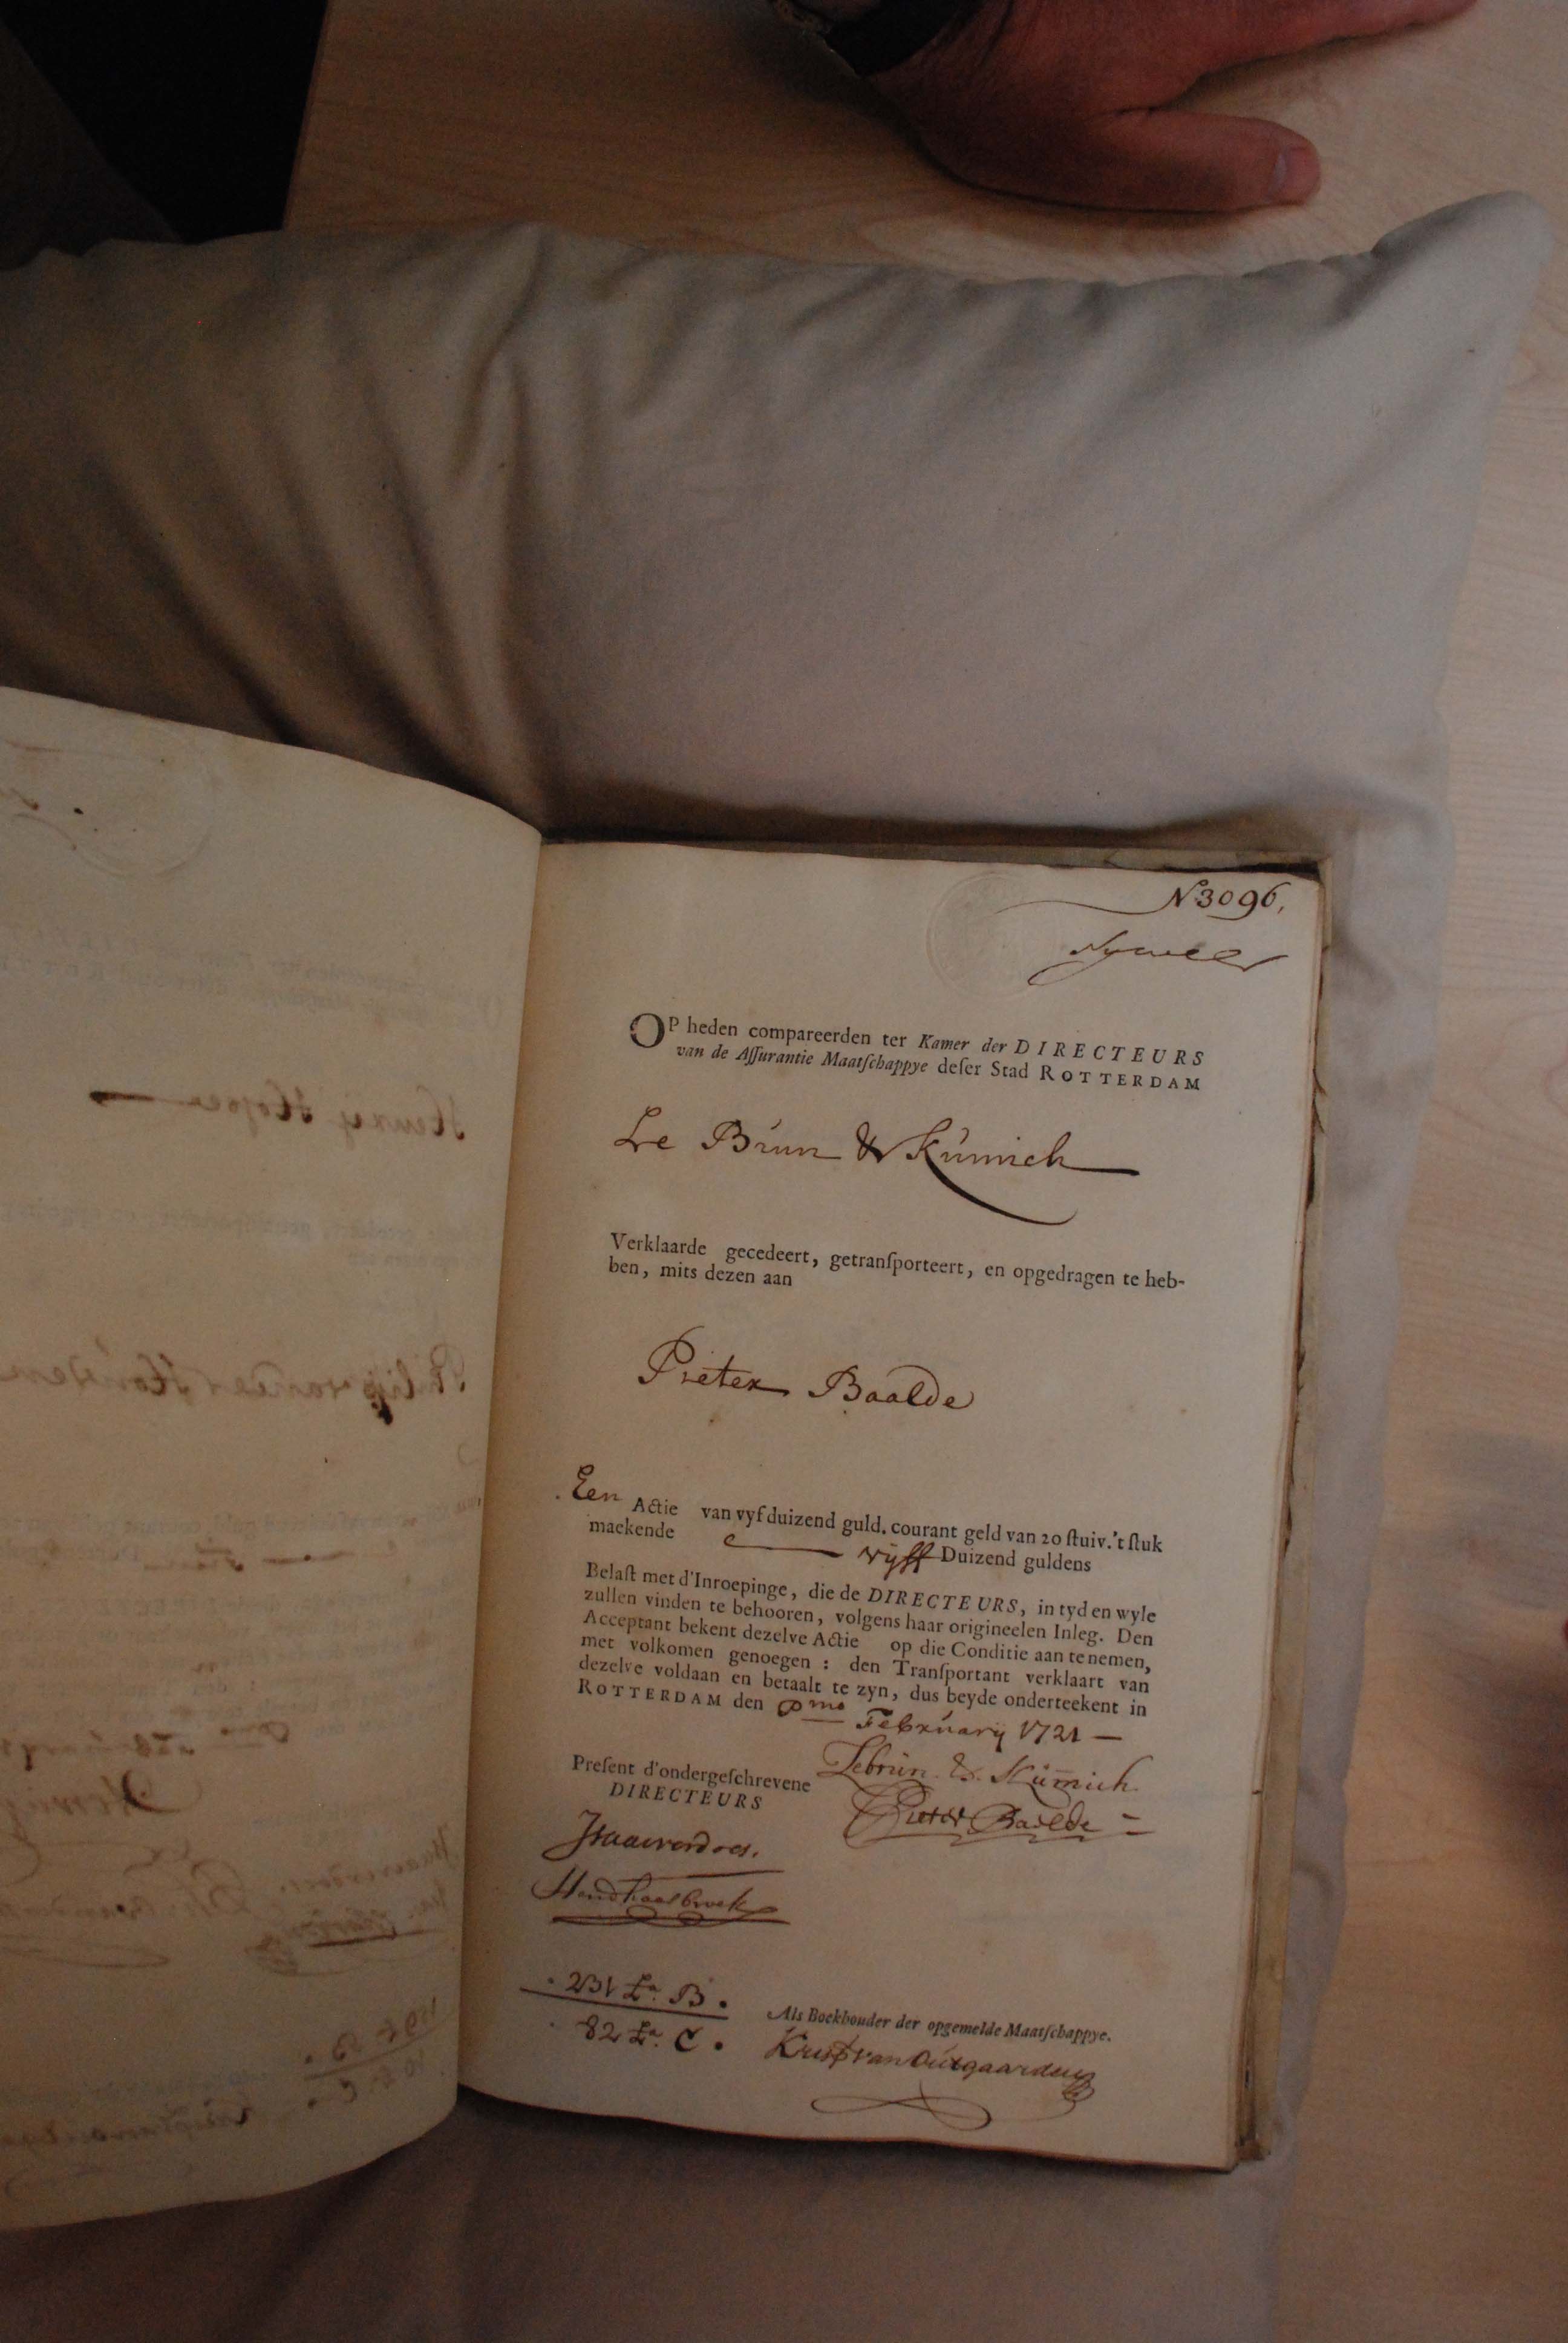 N 3096.
OP heden compareerden ter Kamer der DIRECTEURS
van de Aſſurantie Maatſchappye deſer Stad ROTTERDAM
Le Brun & Kúnnich
Verklaarde gecedeert, getranſporteert, en opgedragen te heb-
ben, mits dezen aan
Pieter Baalde
Een Actie van vyf duizend guld. courant geld van 20 ſtuiv. 't ſtuk
maekende vijff Duizend guldens
Belaſt met d'Inroepinge, die de DIRECTEURS, in tyd en wyle
zullen vinden te behooren, volgens haar origineelen Inleg. Den
Acceptant bekent dezelve Actie op die Conditie aan te nemen,
met volkomen genoegen : den Tranſportant verklaart van
dezelve voldaan en betaalt te zyn, dus beyde onderteekent in
ROTTERDAM den pmo Februarij 1721
Preſent d'ondergeſchrevene
DIRECTEURS
Lebrún & Kümich
Pieter Baalde
Isaacverdoes.
Hend haasbroek
231 La. B.
82 La. C.
Als Boekhouder der opgemelde Maatſchappye.